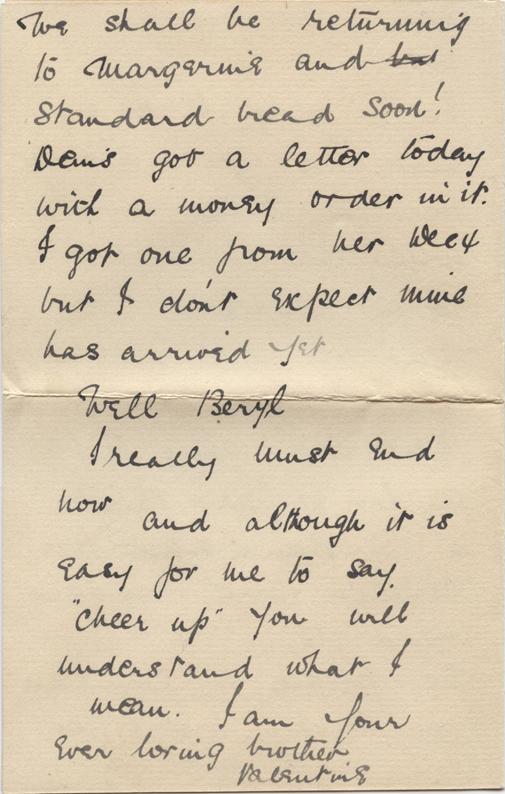 We shall be returning
to Margerine and but
Standard bread soon!
Denis got a letter today
with a money order in it.
I got one from her Week
but I don't expect mine
has arrived yet
Well Beryl
I really must End
now and although it is
Easy for me to say
"cheer up" you will
understand what I
mean. I am your
Ever loving brother
Valentine